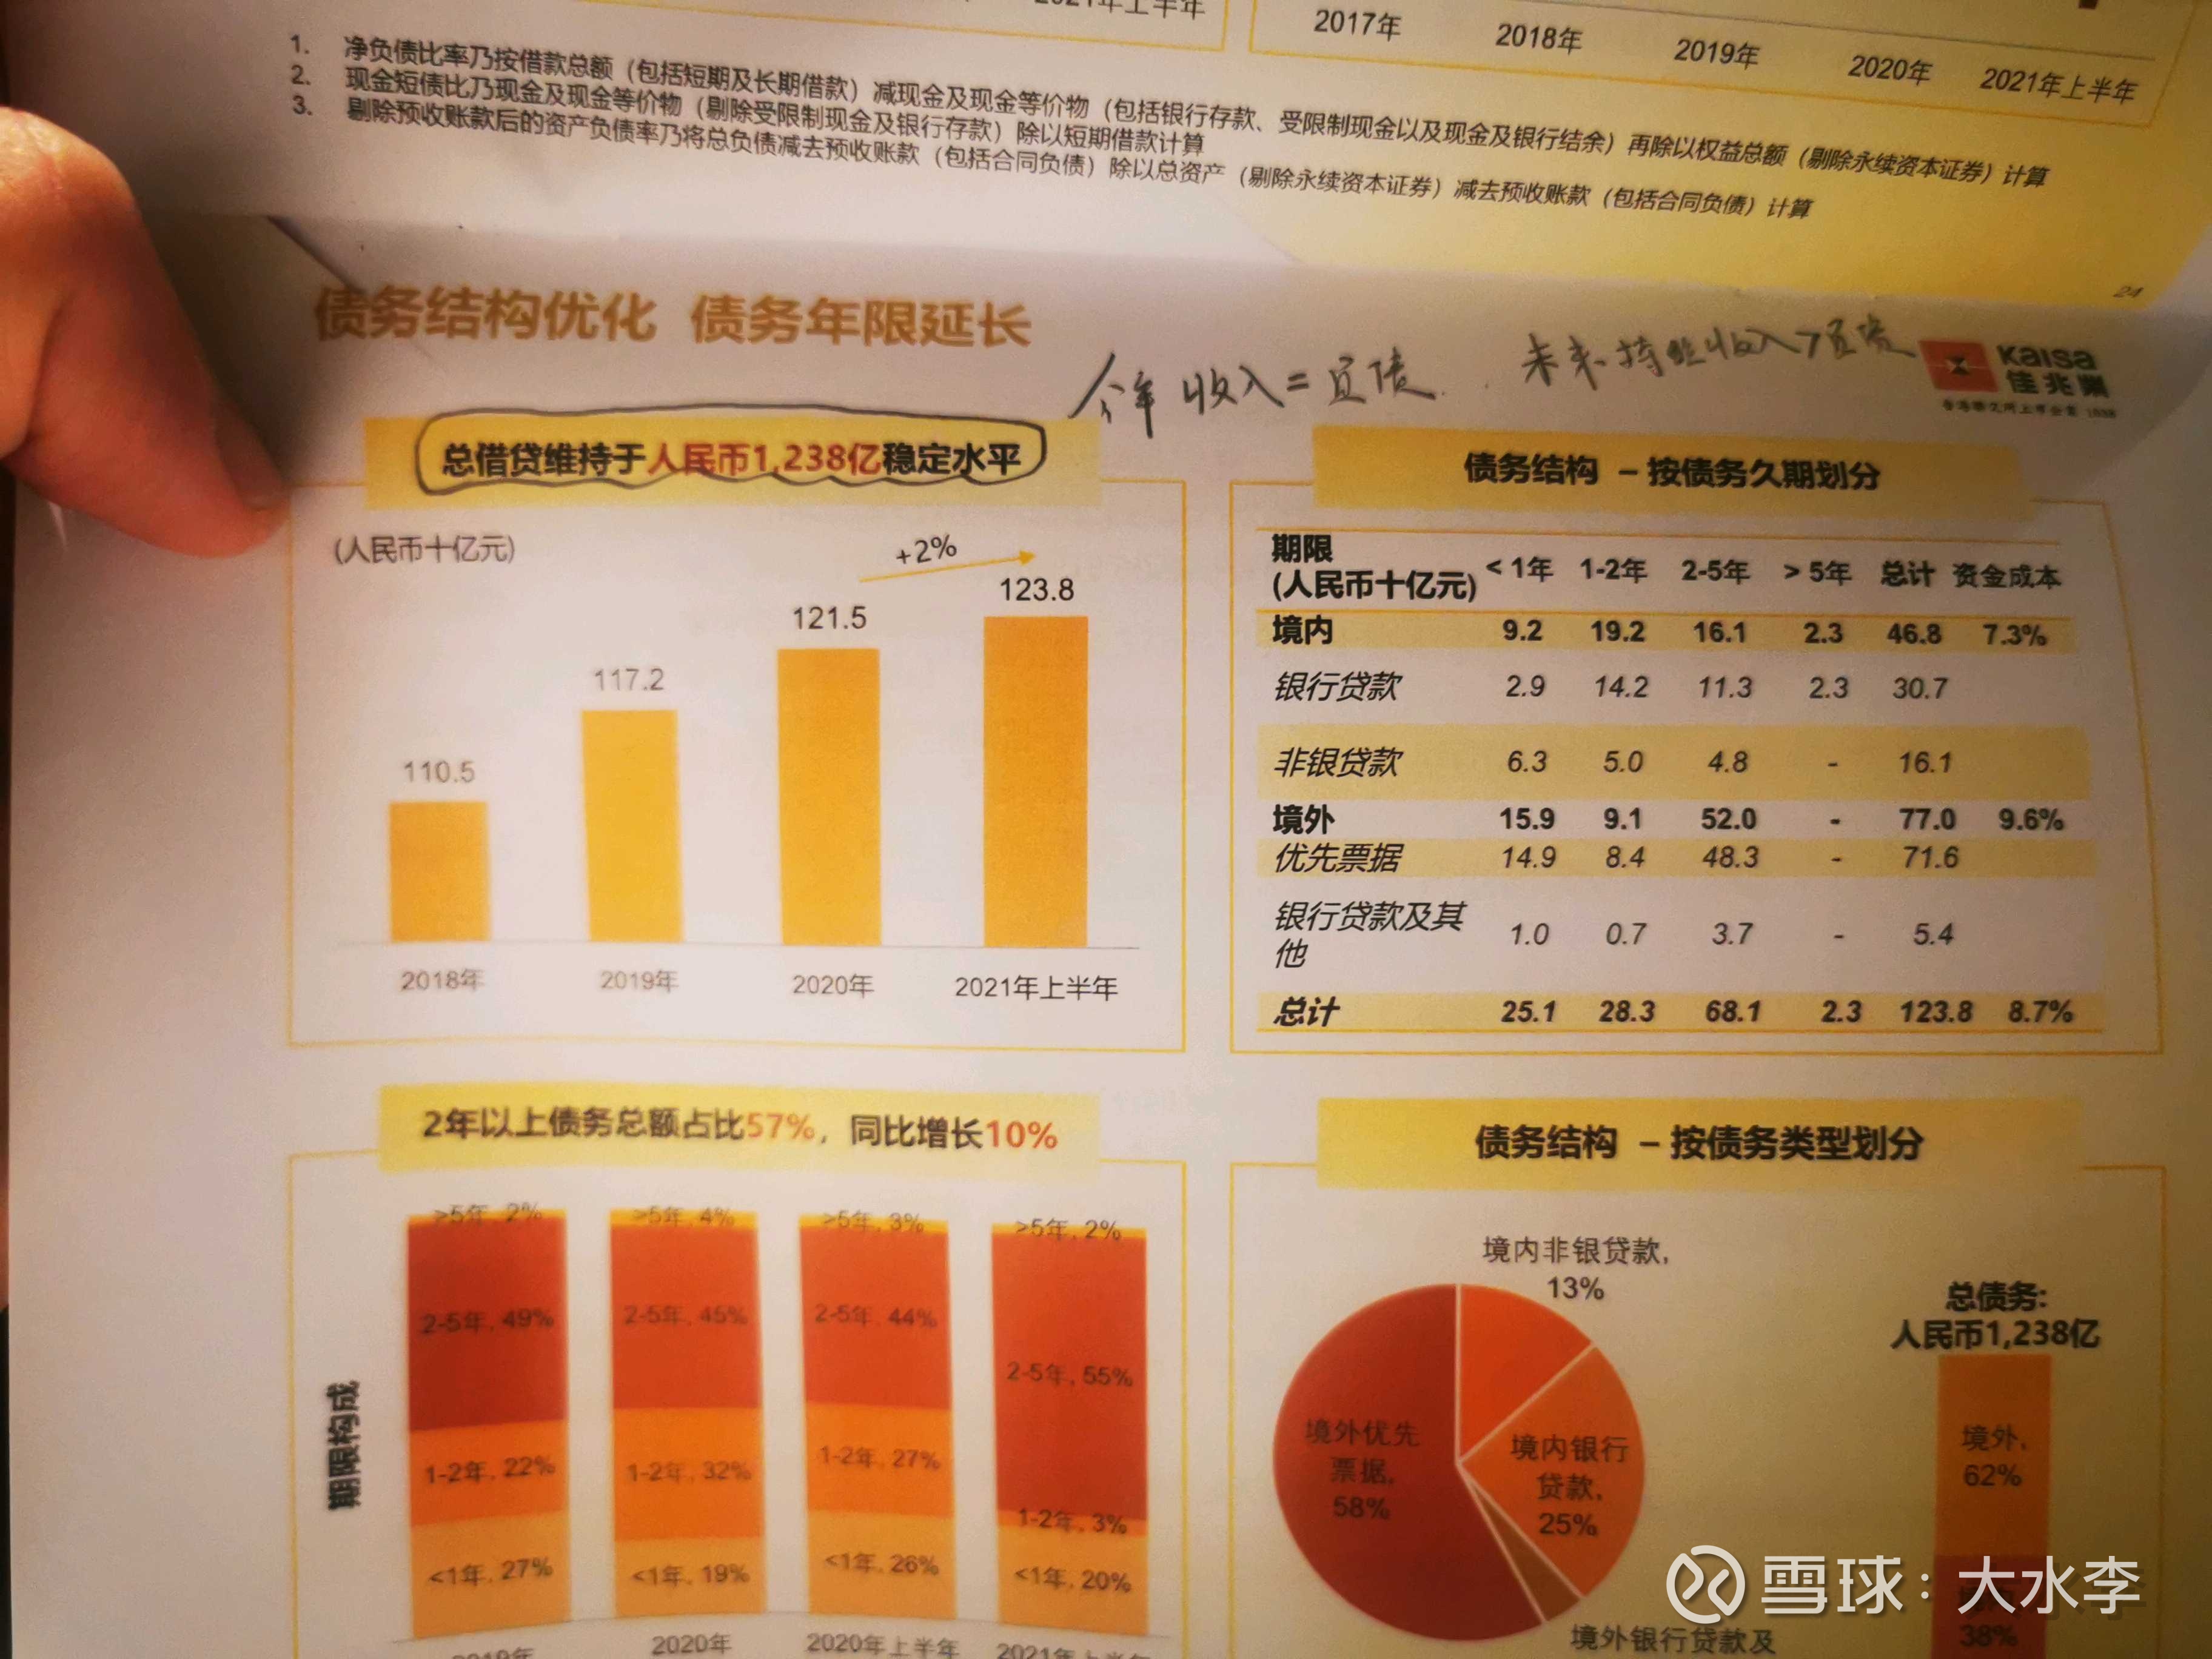 2021年上半年
2017年 2018年 2019年 2020年 2021年上半年
1. 净负债比率乃按借款总额（包括短期及长期借款）减现金及现金等价物（包括银行存款、受限制现金以及现金及银行结余）再除以权益总额（剔除永续资本证券）计算
2. 现金短债比乃现金及现金等价物（剔除受限制现金及银行存款）除以短期借款计算
3. 剔除预收账款后的资产负债率乃将总负债减去预收账款（包括合同负债）除以总资产（剔除永续资本证券）减去预收账款（包括合同负债）计算
24
债务结构优化 债务年限延长
今年收入=宜债. 未来持续收入>宜债
Kaisa
佳兆業
总借贷维持于人民币1,238亿稳定水平
(人民币十亿元)
+2%
110.5 117.2 121.5 123.8
2018年 2019年 2020年 2021年上半年
债务结构 – 按债务久期划分
期限
(人民币十亿元) < 1年 1-2年 2-5年 > 5年 总计 资金成本
境内 9.2 19.2 16.1 2.3 46.8 7.3%
银行贷款 2.9 14.2 11.3 2.3 30.7
非银贷款 6.3 5.0 4.8 - 16.1
境外 15.9 9.1 52.0 - 77.0 9.6%
优先票据 14.9 8.4 48.3 - 71.6
银行贷款及其
他 1.0 0.7 3.7 - 5.4
总计 25.1 28.3 68.1 2.3 123.8 8.7%
2年以上债务总额占比57%，同比增长10%
期限构成
>5年, 2% >5年, 4% >5年, 3% >5年, 2%
2-5年, 49% 2-5年, 45% 2-5年, 44% 2-5年, 55%
1-2年, 22% 1-2年, 32% 1-2年, 27% 1-2年, 3%
<1年, 27% <1年, 19% <1年, 26% <1年, 20%
2019年 2020年 2020年上半年 2021年上半年
债务结构 – 按债务类型划分
境内非银贷款,
13%
境外优先
票据,
58%
境内银行
贷款,
25%
境外银行贷款及
总债务:
人民币1,238亿
境外,
62%
38%
雪球：大水李